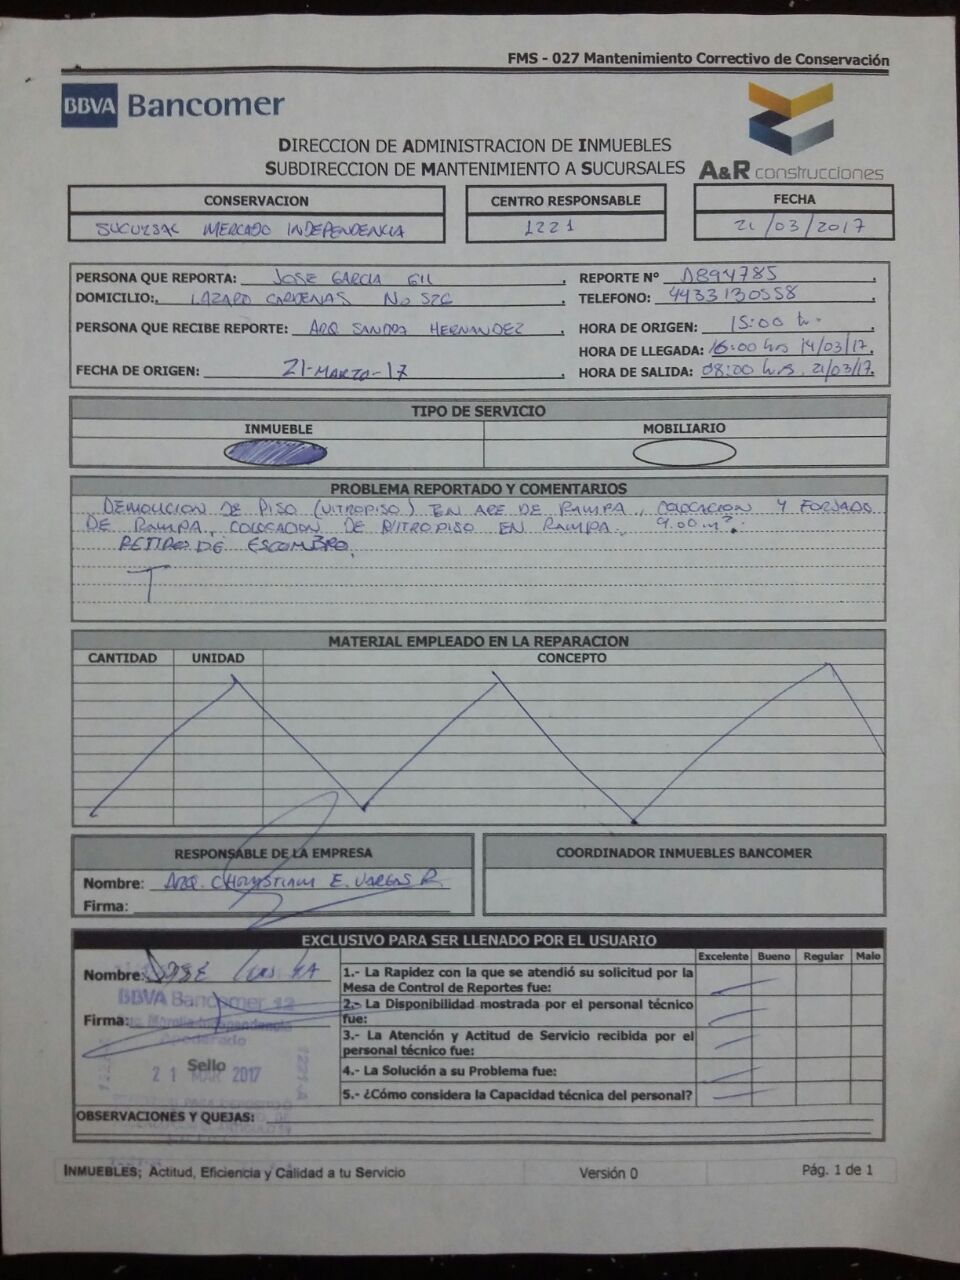 FMS - 027 Mantenimiento Correctivo de Conservación
BBVA Bancomer
DIRECCION DE ADMINISTRACION DE INMUEBLES
SUBDIRECCION DE MANTENIMIENTO A SUCURSALES
A&R construcciones
CONSERVACION
SUCURSAL MERCADO INDEPENDENCIA
CENTRO RESPONSABLE
1221
FECHA
21/03/2017
PERSONA QUE REPORTA: JOSE GARCIA GIL
REPORTE N° A894785
DOMICILIO:, LAZARO CARDENAS No 526
TELEFONO: 4433130558
PERSONA QUE RECIBE REPORTE: ARQ SANDRA HERNANDEZ
HORA DE ORIGEN: 15:00 h.
HORA DE LLEGADA: 16:00 hrs 14/03/17
FECHA DE ORIGEN: 21-MARZO-17
HORA DE SALIDA: 08:00 hrs. 21/03/17
TIPO DE SERVICIO
INMUEBLE MOBILIARIO
PROBLEMA REPORTADO Y COMENTARIOS
DEMOLICION DE PISO (VITROPISO) EN ARE DE RAMPA, COLOCACION Y FORJADO
DE RAMPA, COLOCACION DE VITROPISO EN RAMPA. 9.00 m².
RETIRO DE ESCOMBRO.
MATERIAL EMPLEADO EN LA REPARACION
CANTIDAD UNIDAD CONCEPTO
RESPONSABLE DE LA EMPRESA
Nombre: ARQ. CHRYSTIAM E. VARGAS R.
Firma:
COORDINADOR INMUEBLES BANCOMER
EXCLUSIVO PARA SER LLENADO POR EL USUARIO
Excelente Bueno Regular Malo
Nombre: JOSE LUIS
BBVA Bancomer
Firma: Morelia Independencia
Apoderado
Sello
21 MAR 2017
1221-A
1.- La Rapidez con la que se atendió su solicitud por la
Mesa de Control de Reportes fue:
2.- La Disponibilidad mostrada por el personal técnico
fue:
3.- La Atención y Actitud de Servicio recibida por el
personal técnico fue:
4.- La Solución a su Problema fue:
5.- ¿Cómo considera la Capacidad técnica del personal?
OBSERVACIONES Y QUEJAS:
INMUEBLES; Actitud, Eficiencia y Calidad a tu Servicio
Versión 0
Pág. 1 de 1